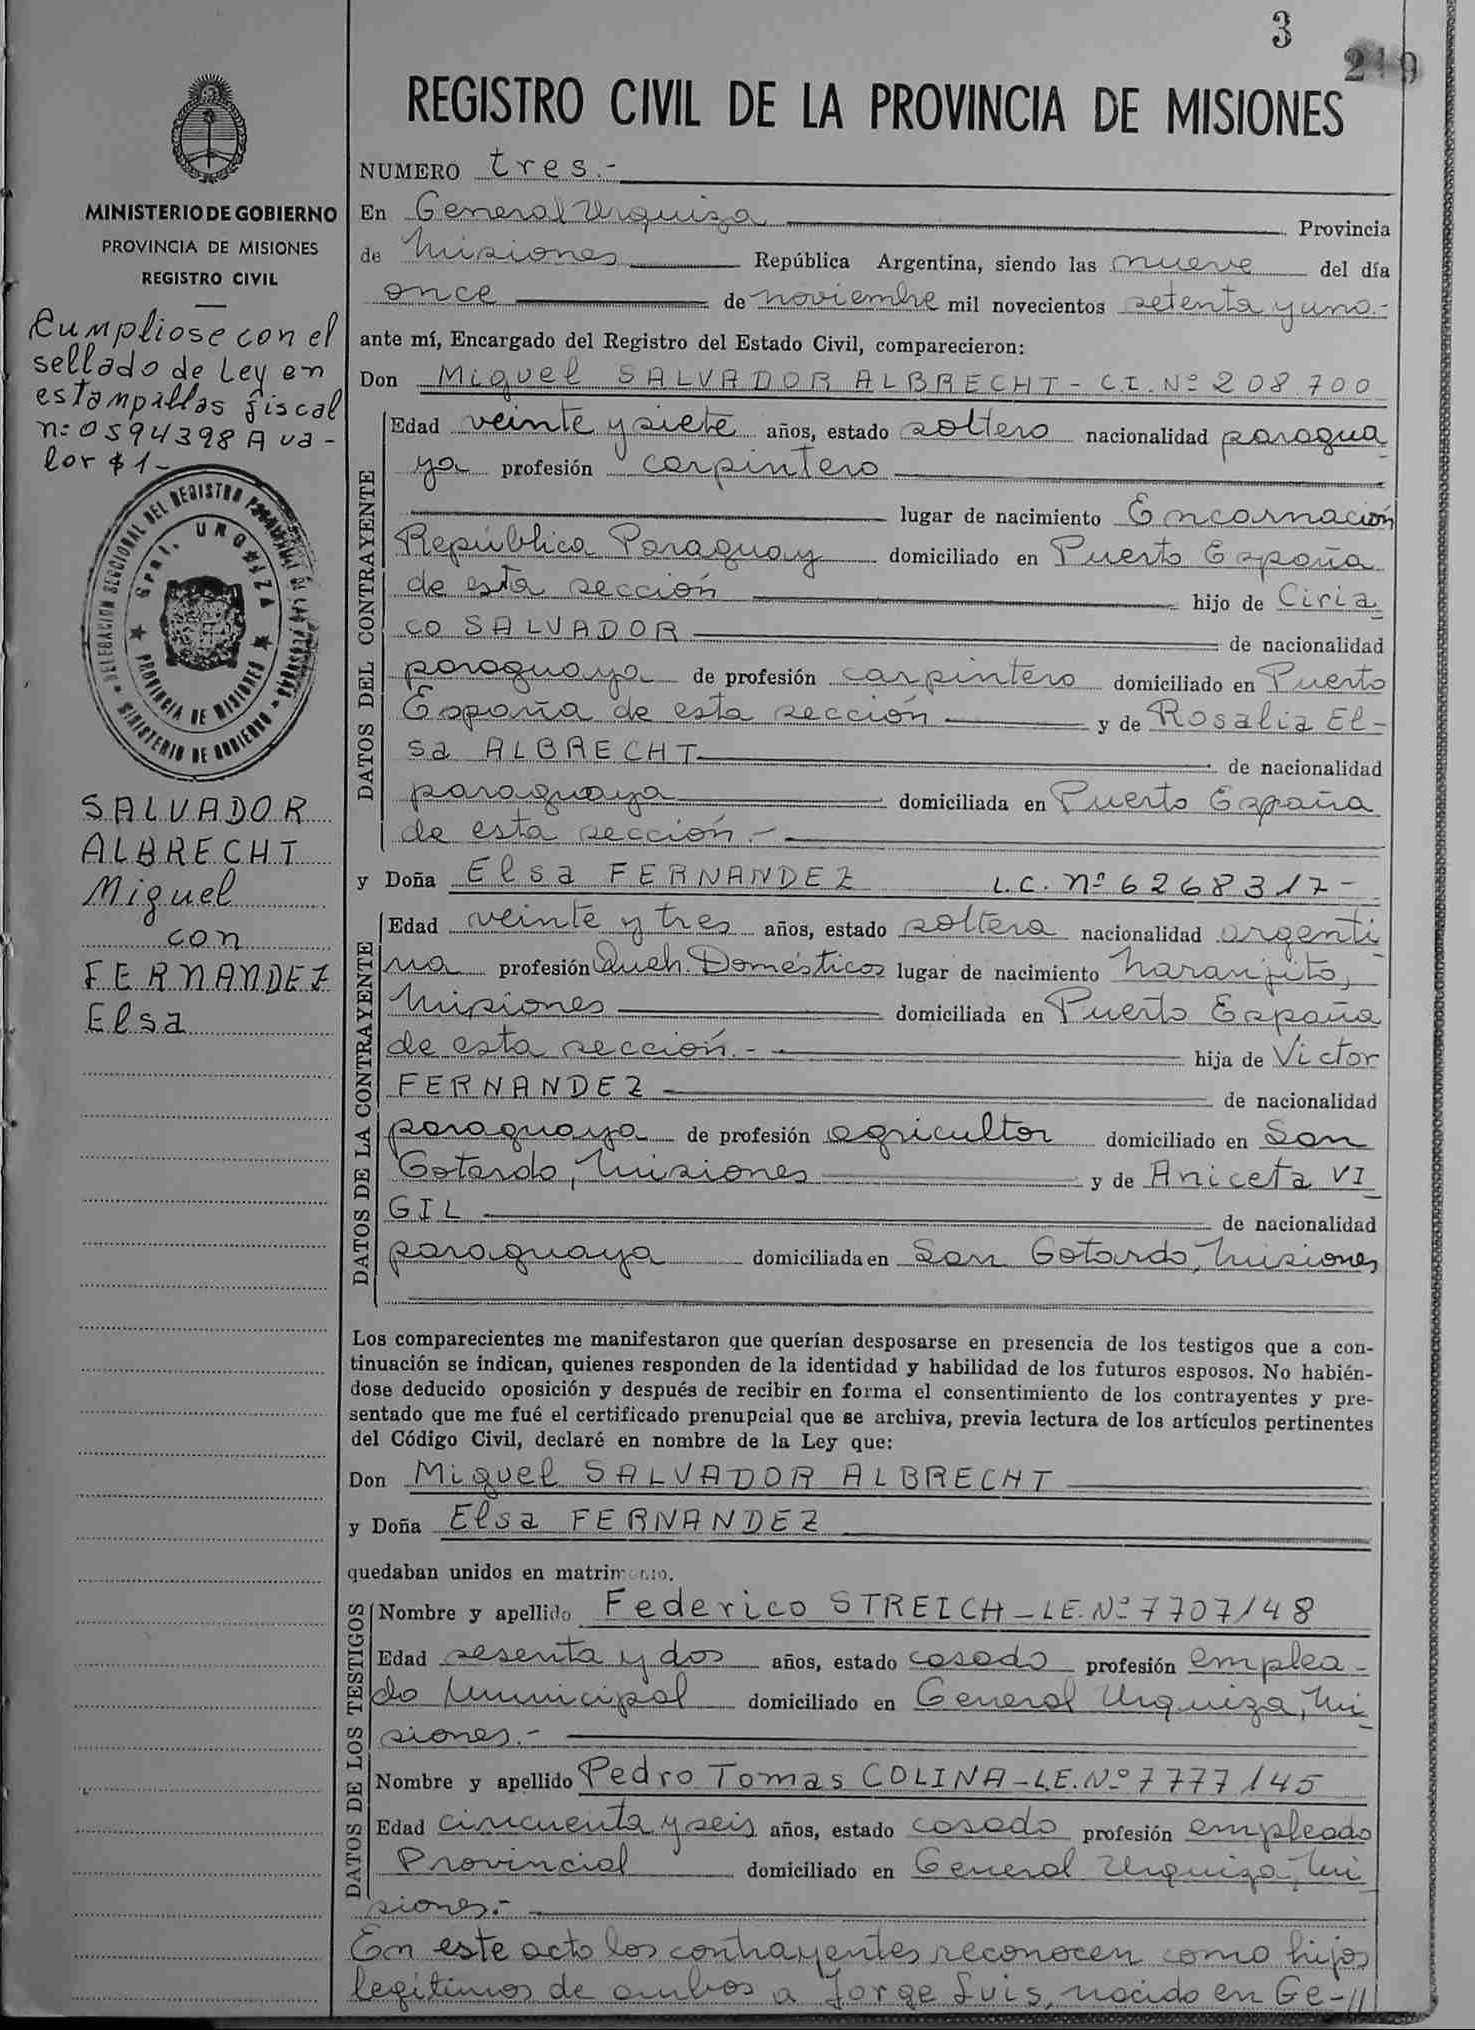 3
219
REGISTRO CIVIL DE LA PROVINCIA DE MISIONES
MINISTERIO DE GOBIERNO
PROVINCIA DE MISIONES
REGISTRO CIVIL
Cumpliose con el
sellado de Ley en
estampillas fiscal
n:º 0594398 A va-
lor $ 1-
DELEGACION SECCIONAL DEL REGISTRO PROVINCIAL DE LAS PERSONAS
MINISTERIO DE GOBIERNO
Gral. URQUIZA
PROVINCIA DE MISIONES
SALVADOR
ALBRECHT
Miguel
con
FERNANDEZ
Elsa
NUMERO tres.-
En General Urquiza Provincia
de Misiones República Argentina, siendo las nueve del día
once de noviembre mil novecientos setenta y uno.-
ante mí, Encargado del Registro del Estado Civil, comparecieron:
Don Miguel SALVADOR ALBRECHT - C.I. Nº 208.700
DATOS DEL CONTRAYENTE
Edad veinte y siete años, estado soltero nacionalidad paragua
ya profesión carpintero
lugar de nacimiento Encarnación
República Paraguay domiciliado en Puerto España
de esta sección hijo de Ciria_
co SALVADOR de nacionalidad
paraguaya de profesión carpintero domiciliado en Puerto
España de esta sección y de Rosalia El-
sa ALBRECHT de nacionalidad
paraguaya domiciliada en Puerto España
de esta sección.-
y Doña Elsa FERNANDEZ L.C. Nº 6268317-
DATOS DE LA CONTRAYENTE
Edad veinte y tres años, estado soltera nacionalidad argenti_
na profesión Queh. Domésticos lugar de nacimiento Naranjito,
Misiones domiciliada en Puerto España
de esta sección.- hija de Victor
FERNANDEZ de nacionalidad
paraguaya de profesión agricultor domiciliado en San
Gotardo, Misiones y de Aniceta VI_
GIL de nacionalidad
paraguaya domiciliada en San Gotardo, Misiones
Los comparecientes me manifestaron que querían desposarse en presencia de los testigos que a con-
tinuación se indican, quienes responden de la identidad y habilidad de los futuros esposos. No habién-
dose deducido oposición y después de recibir en forma el consentimiento de los contrayentes y pre-
sentado que me fué el certificado prenupcial que se archiva, previa lectura de los artículos pertinentes
del Código Civil, declaré en nombre de la Ley que:
Don Miguel SALVADOR ALBRECHT
y Doña Elsa FERNANDEZ
quedaban unidos en matrimonio.
DATOS DE LOS TESTIGOS
Nombre y apellido Federico STREICH - LE. Nº 7707148
Edad sesenta y dos años, estado casado profesión emplea-
do Municipal domiciliado en General Urquiza, Mi_
siones.-
Nombre y apellido Pedro Tomas COLINA - L.E. Nº 7777145
Edad cincuenta y seis años, estado casado profesión empleado
Provincial domiciliado en General Urquiza, Mi_
siones.-
En este acto los contrayentes reconocen como hijos
legítimos de ambos a Jorge Luis, nacido en Ge-//